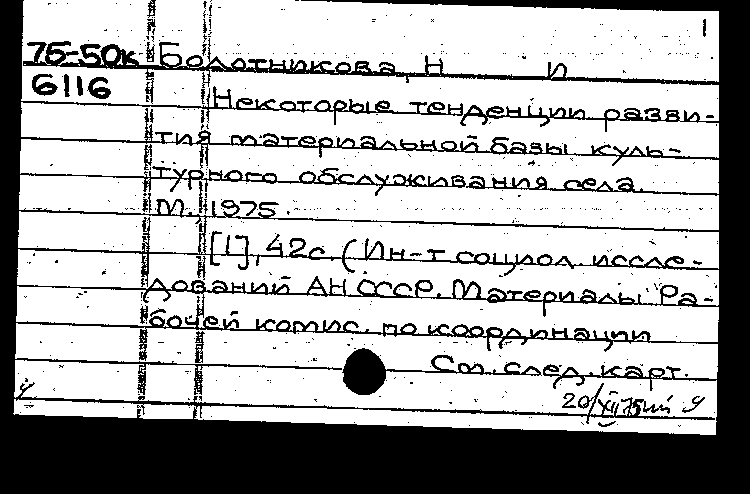 1
75-50к Болотникова, Н И
6116
Некоторые тенденции разви-
тия материальной базы куль-
турного обслуживания села.
М., 1975.
[1], 42с. (Ин-т социол. иссле-
дований АН СССР. Материалы Ра-
бочей комис. по координации
См. след. карт.
20/XII 75